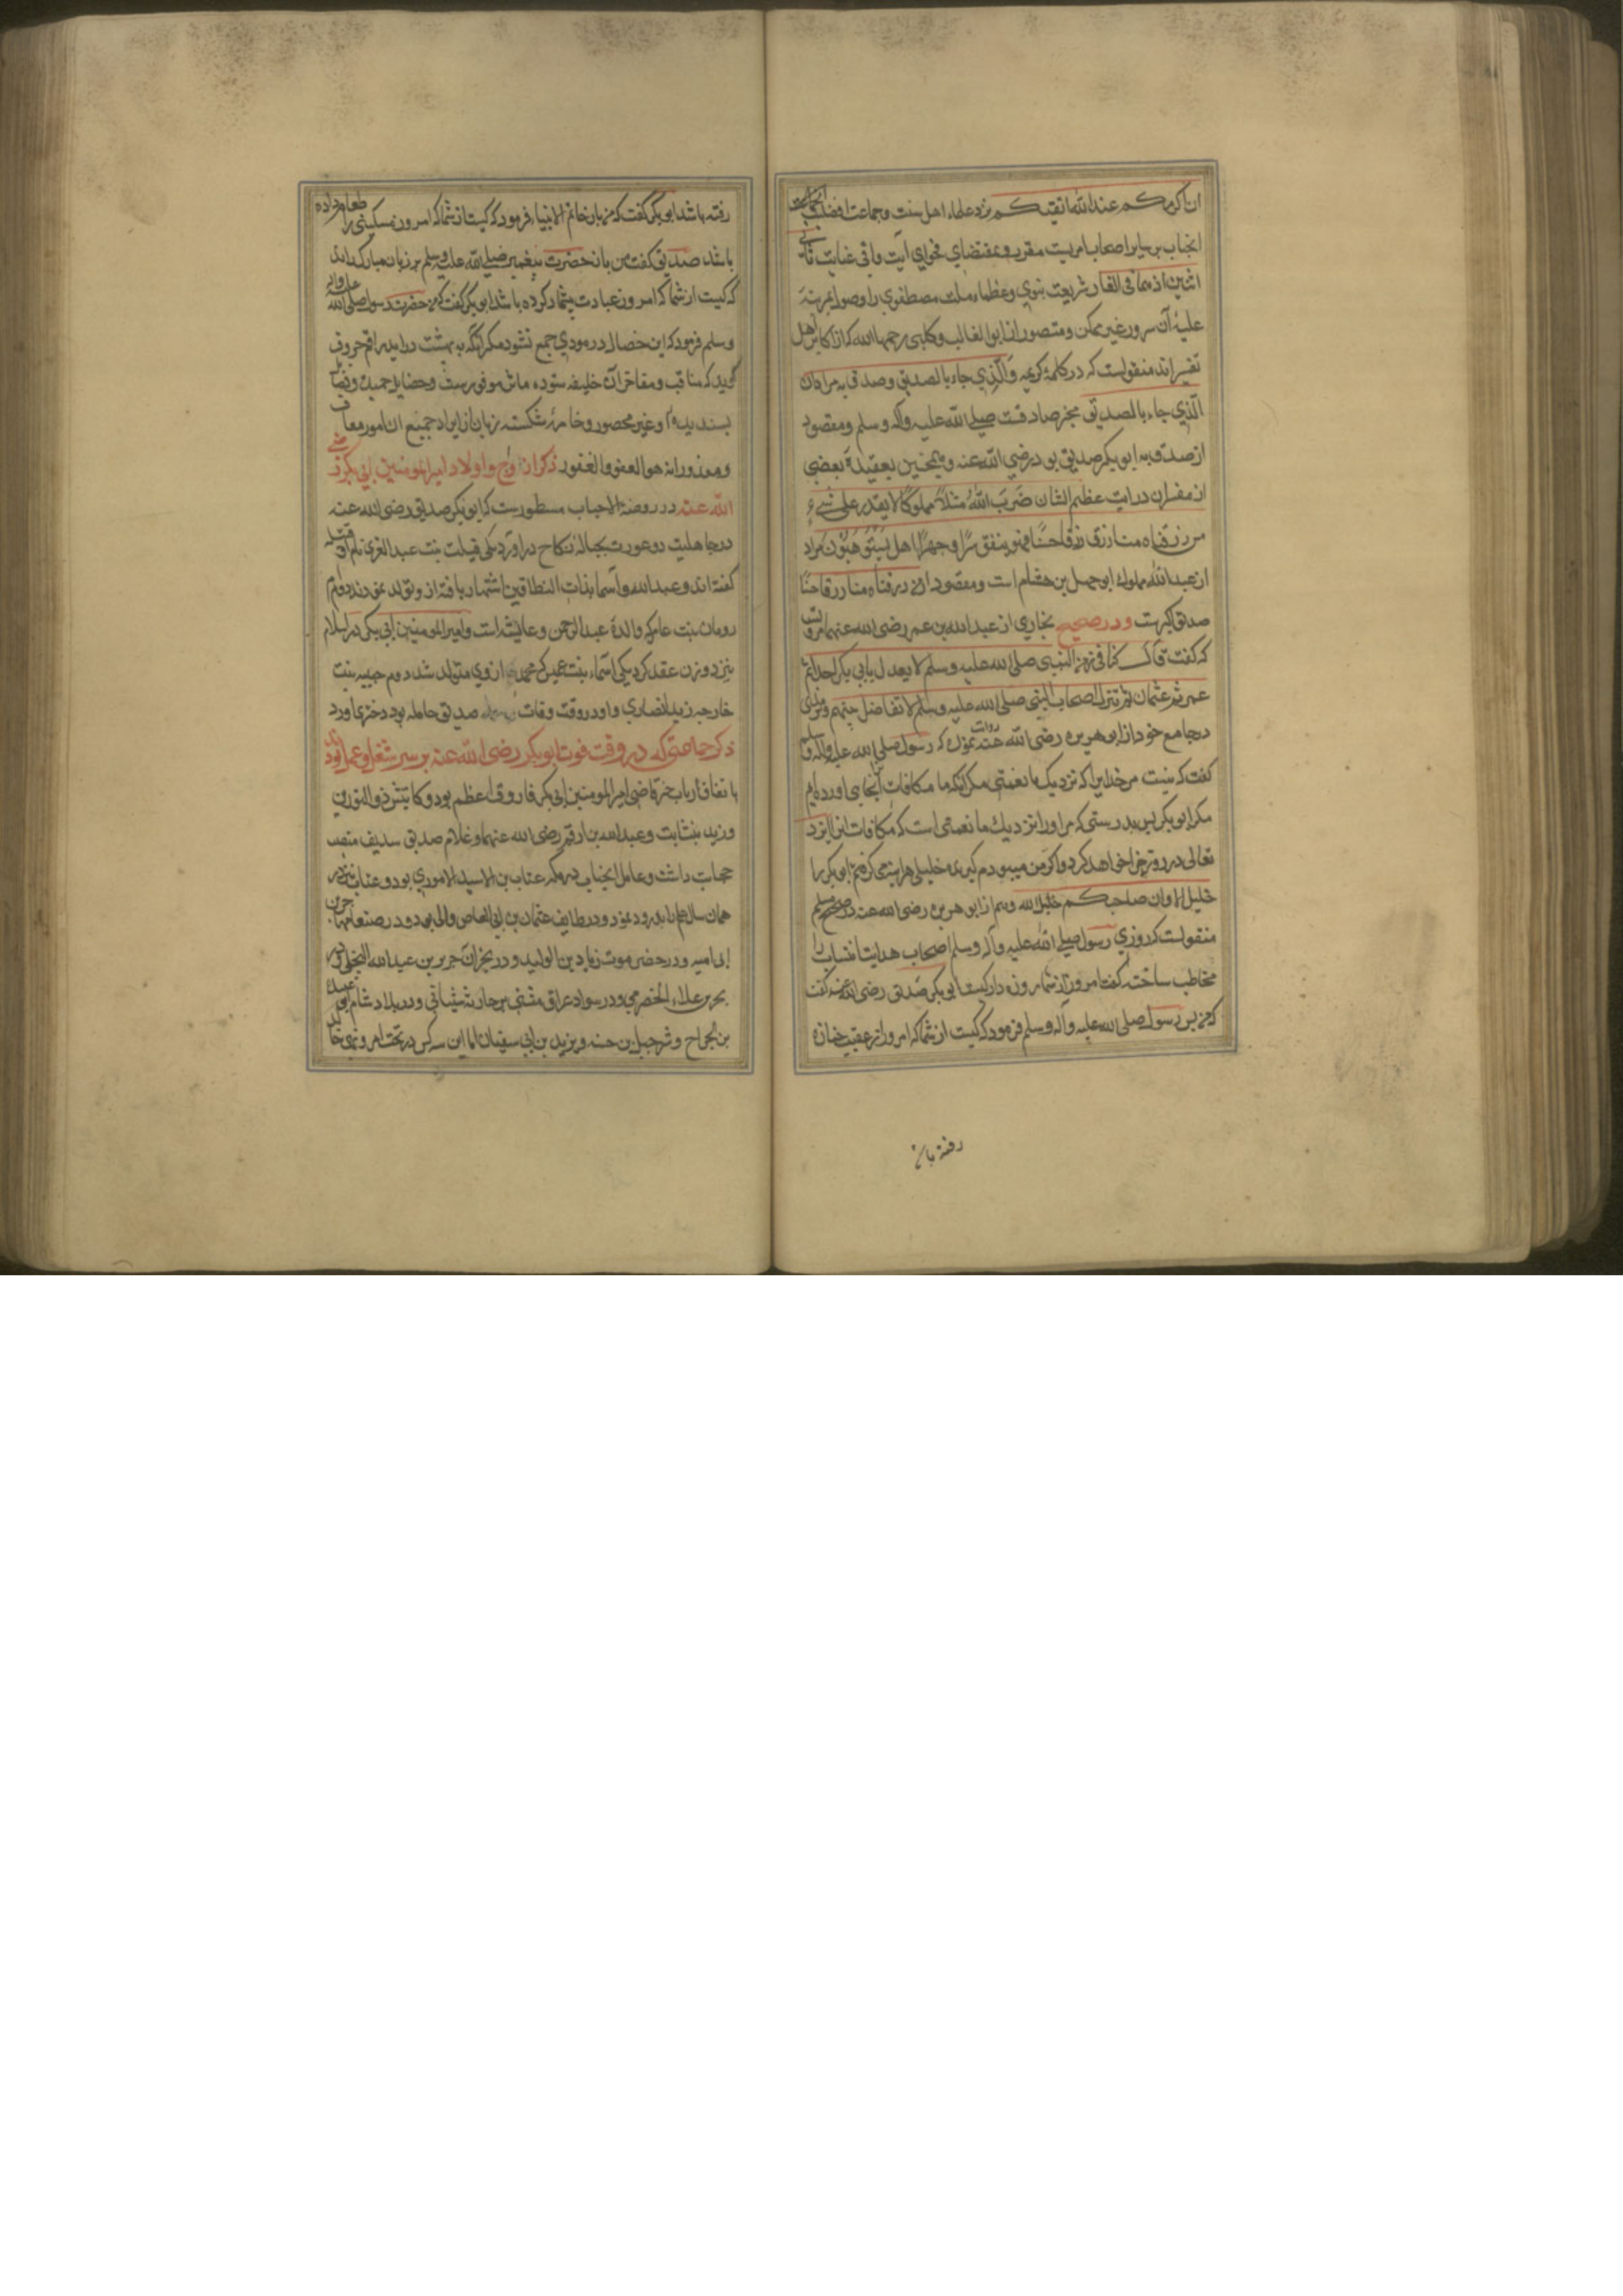 ان اکرمکم عندالله اتقیکم نزد علماء اهل سنت و جماعت افضلیت
انجناب بر سایر اصحاب امریست مقرر و بمقتضای فحوای آیت وافی غایت ثانی
اثنین اذ هما فی الغار شریعت نبوی و عظماء ملت مصطفوی را وصول بمرتبه
علیهٔ آن سرور غیر ممکن و متصور از ابو العالیه و کلبی رحمهما الله که از اکابر اهل
تفسیراند منقولست که در کلمهٔ کریمه والذی جاء بالصدق و صدق به مراد از
الذی جاء بالصدق مخبر صادقست صلی الله علیه وآله وسلم ومقصود
از صدق به ابو بکر صدیق بود رضی الله عنه و همچنین بعقیدهٔ بعضی
از مفسران در ایت عظیم الشان ضرب الله مثلا مملوکا لا یقدر علی شیء
من رزقناه منا رزقا حسنا فهو ینفق سرا وجهرا هل یستوون مراد
از عبدالله مملوک ابو جهل بن هشام است ومقصود از من رزقناه منا رزقا حسنا
صدیق اکبرست ودر صحیح بخاری از عبدالله بن عمر رضی الله عنهما مرویست
که گفت قال کنا فی زمن النبی صلی الله علیه وسلم لا یعدل بابی بکر احدا ثم
عمر ثم عثمان ثم نترک اصحاب النبی صلی الله علیه وسلم لا تفاضل بینهم وترمذی
در جامع خود از ابو هریره رضی الله عنه روایت نموده که رسول صلی الله علیه وآله وسلم
گفت که نیست مر خدایرا که نزدیک ما نعمتی مگر آنکه ما مکافات آنجای اورده ایم
مگر ابو بکر پس بدرستی که مر اورا نزدیک ما نعمتی است که مکافات انرا ایزد
تعالی در روز جزا خواهد کرد و اگر من میبودم گیرنده خلیلی هر اینه می گرفتم ابو بکر را
خلیل الا وان صاحبکم خلیل الله وهم از ابو هریره رضی الله عنه در صحیح مسلم
منقولست که روزی رسول صلی الله علیه وآله وسلم اصحاب هدایت انتساب را
مخاطب ساخته گفت امروز از شما روزه دار کیست ابی بکر صدیق رضی الله عنه گفت
که من پس رسول صلی الله علیه وآله وسلم فرمود که کیست از شما که امروز از عقب جنازه
رفته با
رفته باشد ابو بکر گفت که من باز خاتم الانبیا فرمود که کیست از شما که امروز مسکینی را طعام داده
باشد صدیق گفت من باز حضرت پیغمبر صلی الله علیه وسلم بر زبان مبارک راند
که کیست از شما که امروز عیادت بیمار کرده باشد ابو بکر گفت که من حضرت رسول صلی الله علیه واله
وسلم فرمود که این خصال در مردی جمع نشود مگر آنکه به بهشت درآید راقم حروف
گوید که مناقب ومفاخر آن خلیفه ستوده مآثر موفورست وخصایل حمیده و
پسندیده او غیر محصور وخامهٔ شکسته زبان از ایراد جمیع ان امور معاف
ومعذور انه هو العفو الغفور ذکر ازواج واولاد امیرالمومنین ابی بکر رضی
الله عنه در روضة الاحباب مسطورست که ابو بکر صدیق رضی الله عنه
در جاهلیت دو عورت بحبالهٔ نکاح دراورد یکی قیلت بنت عبدالعزی نام او قتیله
گفته اند وعبدالله واسما بذات النطاقین اشتهار یافته از و تولد نمودند دوم ام
رومان بنت عامر که والدهٔ عبدالرحمن وعایشه است وامیرالمومنین ابی بکر در اسلام
نیز دو زن عقد کرد یکی اسماء بنت عمیس که محمد از وی متولد شد دوم حبیبه بنت
خارجه زید انصاری واو در وقت وفات صدیق حامله بود دختری اورد
ذکر جماعتی که در وقت فوت ابو بکر رضی الله عنه بر سر شغل وعمل بودند
باتفاق ارباب خبر قاضی امیرالمومنین ابی بکر فاروق اعظم بود وکاتبش ذوالنورین
وزید بن ثابت وعبدالله بن ارقم رضی الله عنهما وغلام صدیق سدیف منصب
حجابت داشت وعامل انجناب در مکه عتاب بن الاسید الاموی بود وعتاب نیز در
همان سال عالم را بدرود نمود ودر طایف عثمان بن ابی العاص والی بود ودر صنعا مهاجر بن
ابی امیه ودر حضر موت زیاد بن الولید ودر نجران جریر بن عبدالله البجلی ودر
بحرین علاء الحضرمی ودر سواد عراق مثنی بن حارثه شیبانی ودر بلاد شام ابو عبیدة
بن الجراح وشرحبیل بن حسنه ویزید بن ابی سفیان اما این سه کس در تحت امر ونهی خالد